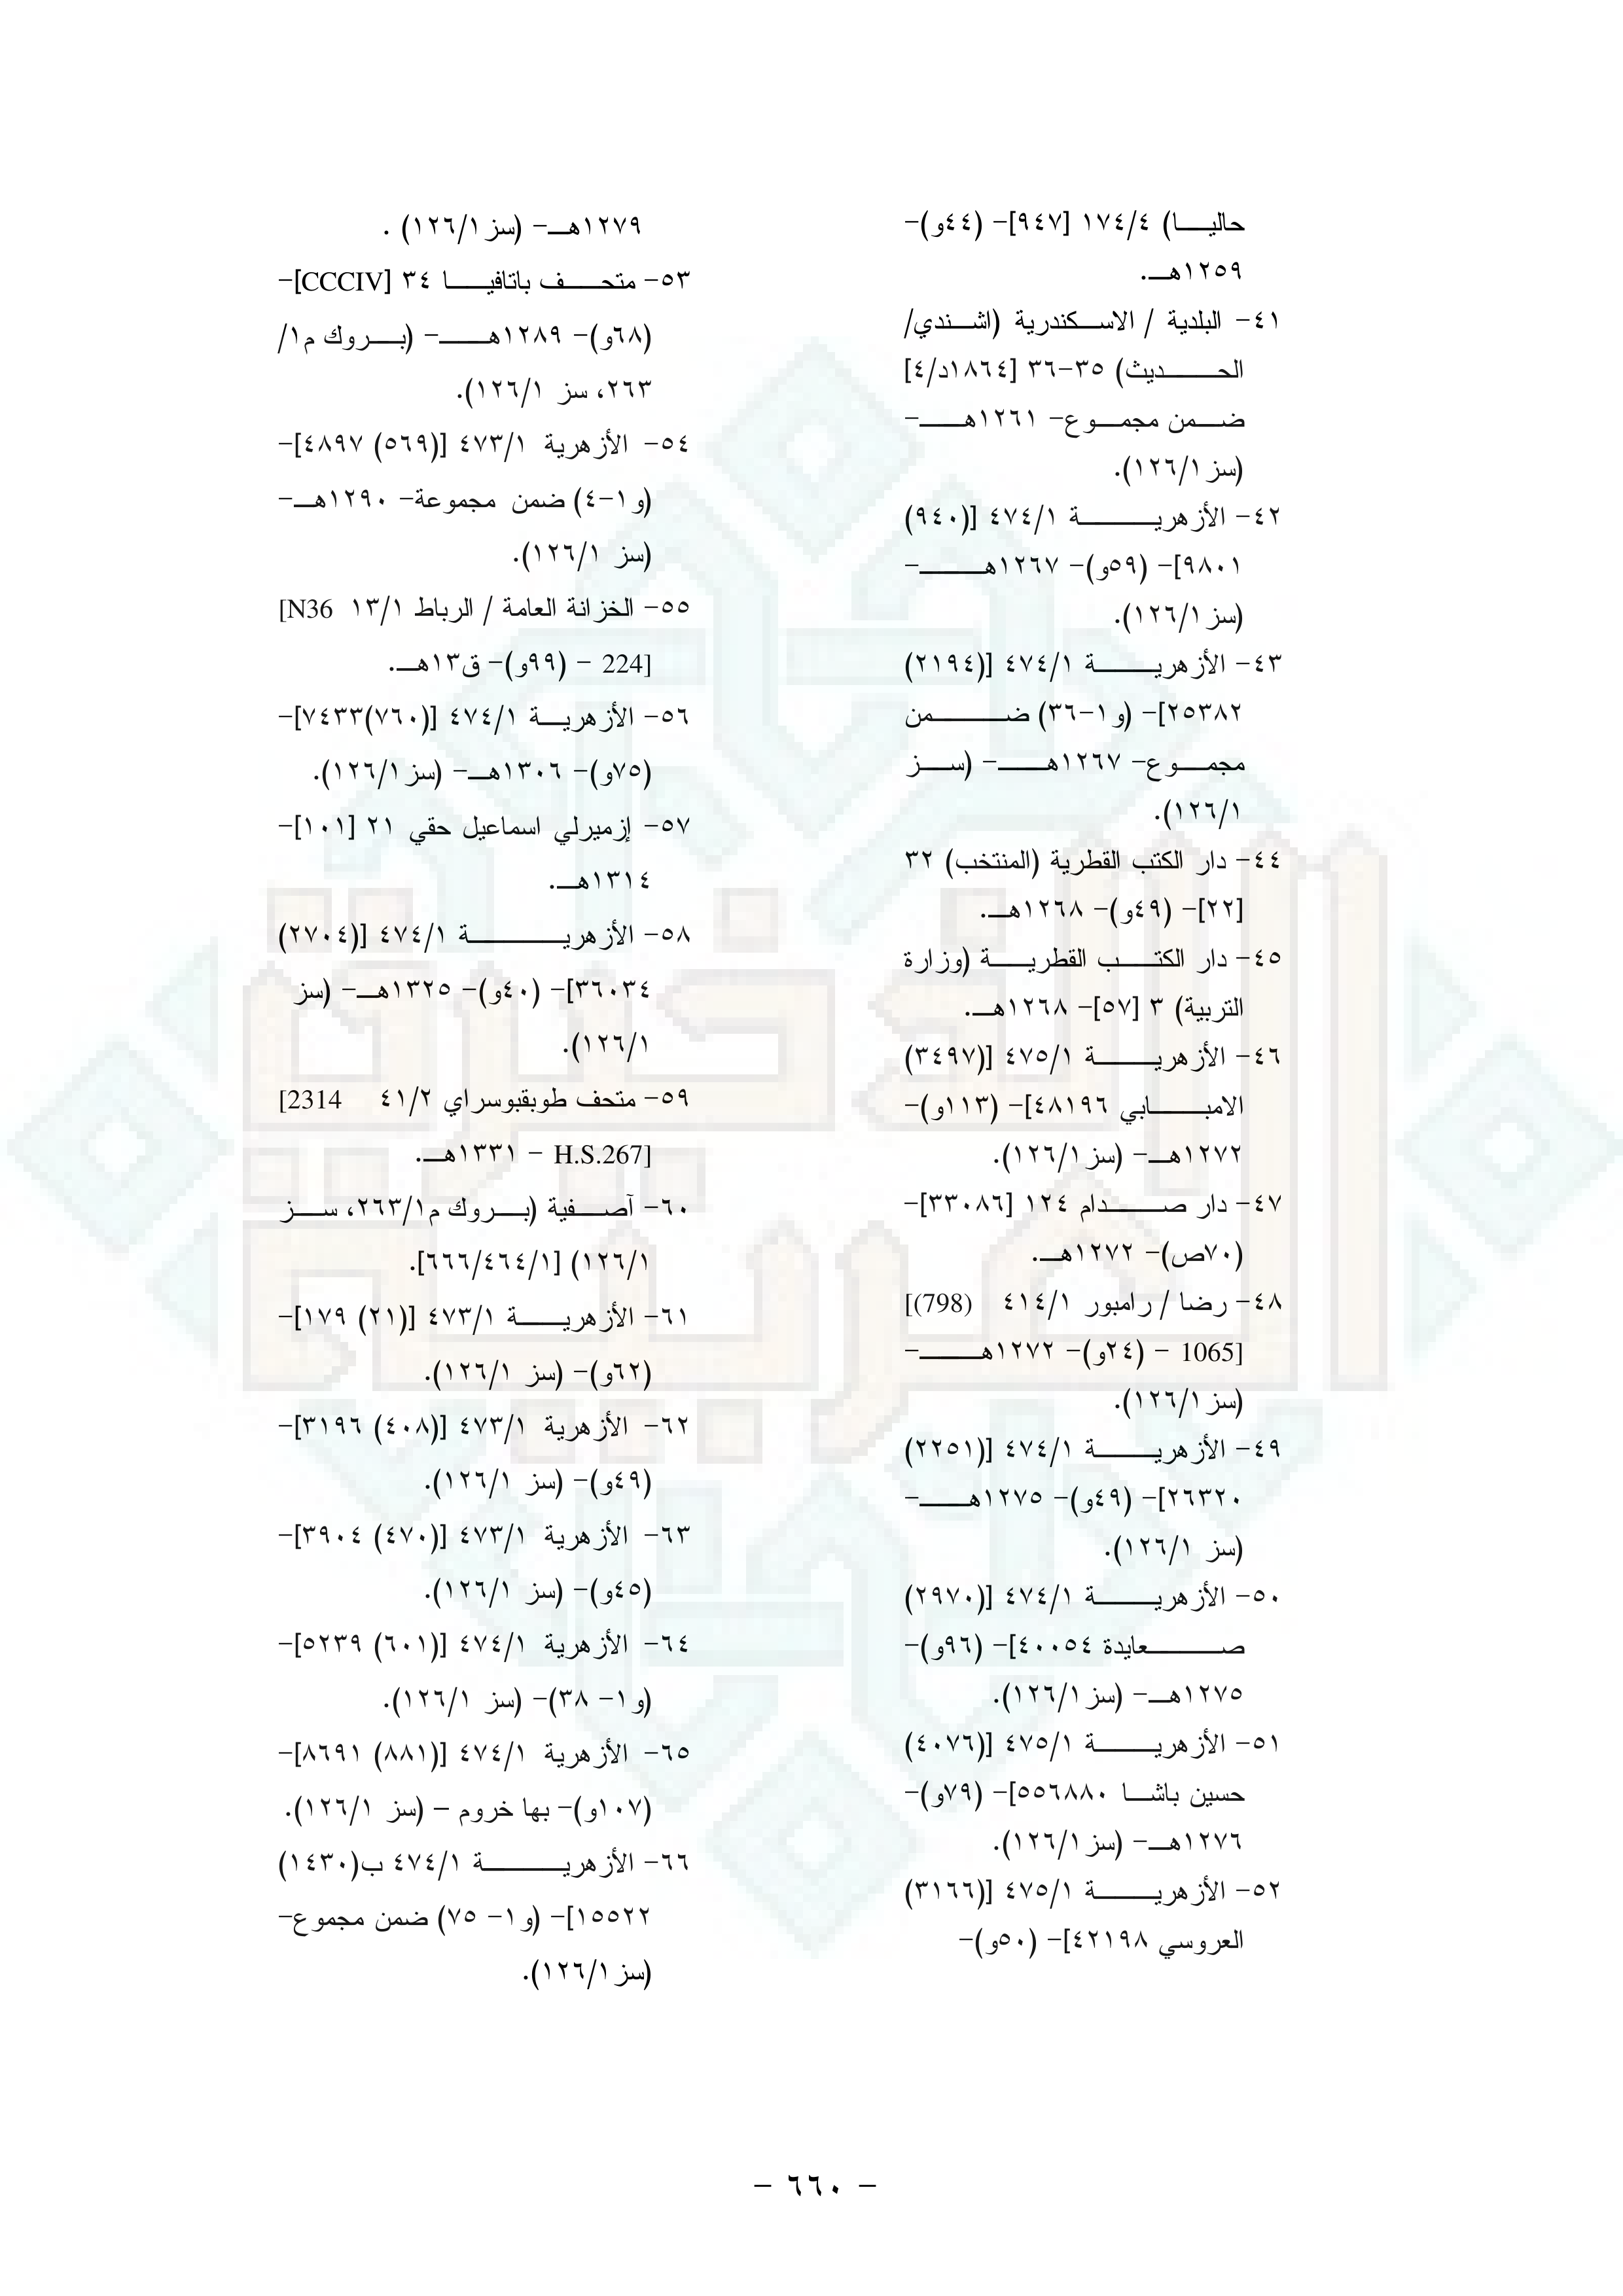 حاليا) ١٧٤/٤ [٩٤٧]– (٤٤و)–
١٢٥٩هـ.
٤١– البلدية / الاسكندرية (اشندي/
الحديث) ٣٥–٣٦ [١٨٦٤د/٤]
ضمن مجموع– ١٢٦١هـ–
(سز١٢٦/١).
٤٢– الأزهرية ٤٧٤/١ [(٩٤٠)
٩٨٠١]– (٥٩و)– ١٢٦٧هـ–
(سز١٢٦/١).
٤٣– الأزهرية ٤٧٤/١ [(٢١٩٤)
٢٥٣٨٢]– (و١–٣٦) ضمن
مجموع– ١٢٦٧هـ– (سز
١٢٦/١).
٤٤– دار الكتب القطرية (المنتخب) ٣٢
[٢٢]– (٤٩و)– ١٢٦٨هـ.
٤٥– دار الكتب القطرية (وزارة
التربية) ٣ [٥٧]– ١٢٦٨هـ.
٤٦– الأزهرية ٤٧٥/١ [(٣٤٩٧)
الامبابي ٤٨١٩٦]– (١١٣و)–
١٢٧٢هـ– (سز١٢٦/١).
٤٧– دار صدام ١٢٤ [٣٣٠٨٦]–
(٧٠ص)– ١٢٧٢هـ.
٤٨– رضا / رامبور ٤١٤/١ [(798)
1065] – (٢٤و)– ١٢٧٢هـ–
(سز١٢٦/١).
٤٩– الأزهرية ٤٧٤/١ [(٢٢٥١)
٢٦٣٢٠]– (٤٩و)– ١٢٧٥هـ–
(سز ١٢٦/١).
٥٠– الأزهرية ٤٧٤/١ [(٢٩٧٠)
صعايدة ٤٠٠٥٤]– (٩٦و)–
١٢٧٥هـ– (سز١٢٦/١).
٥١– الأزهرية ٤٧٥/١ [(٤٠٧٦)
حسين باشا ٥٥٦٨٨٠]– (٧٩و)–
١٢٧٦هـ– (سز١٢٦/١).
٥٢– الأزهرية ٤٧٥/١ [(٣١٦٦)
العروسي ٤٢١٩٨]– (٥٠و)–
١٢٧٩هـ– (سز١٢٦/١) .
٥٣– متحف باتافيا ٣٤ [CCCIV]–
(٦٨و)– ١٢٨٩هـ– (بروك م١/
٢٦٣، سز ١٢٦/١).
٥٤– الأزهرية ٤٧٣/١ [(٥٦٩) ٤٨٩٧]–
(و١–٤) ضمن مجموعة– ١٢٩٠هـ–
(سز ١٢٦/١).
٥٥– الخزانة العامة / الرباط ١٣/١ [N36
224] – (٩٩و)– ق١٣هـ.
٥٦– الأزهرية ٤٧٤/١ [(٧٦٠)٧٤٣٣]–
(٧٥و)– ١٣٠٦هـ– (سز١٢٦/١).
٥٧– إزميرلي اسماعيل حقي ٢١ [١٠١]–
١٣١٤هـ.
٥٨– الأزهرية ٤٧٤/١ [(٢٧٠٤)
٣٦٠٣٤]– (٤٠و)– ١٣٢٥هـ– (سز
١٢٦/١).
٥٩– متحف طوبقبوسراي ٤١/٢ [2314
H.S.267] – ١٣٣١هـ.
٦٠– آصفية (بروك م٢٦٣/١، سز
١٢٦/١) [٦٦٦/٤٦٤/١].
٦١– الأزهرية ٤٧٣/١ [(٢١) ١٧٩]–
(٦٢و)– (سز ١٢٦/١).
٦٢– الأزهرية ٤٧٣/١ [(٤٠٨) ٣١٩٦]–
(٤٩و)– (سز ١٢٦/١).
٦٣– الأزهرية ٤٧٣/١ [(٤٧٠) ٣٩٠٤]–
(٤٥و)– (سز ١٢٦/١).
٦٤– الأزهرية ٤٧٤/١ [(٦٠١) ٥٢٣٩]–
(و١– ٣٨)– (سز ١٢٦/١).
٦٥– الأزهرية ٤٧٤/١ [(٨٨١) ٨٦٩١]–
(١٠٧و)– بها خروم – (سز ١٢٦/١).
٦٦– الأزهرية ٤٧٤/١ ب(١٤٣٠)
١٥٥٢٢]– (و١– ٧٥) ضمن مجموع–
(سز١٢٦/١).
– ٦٦٠ –